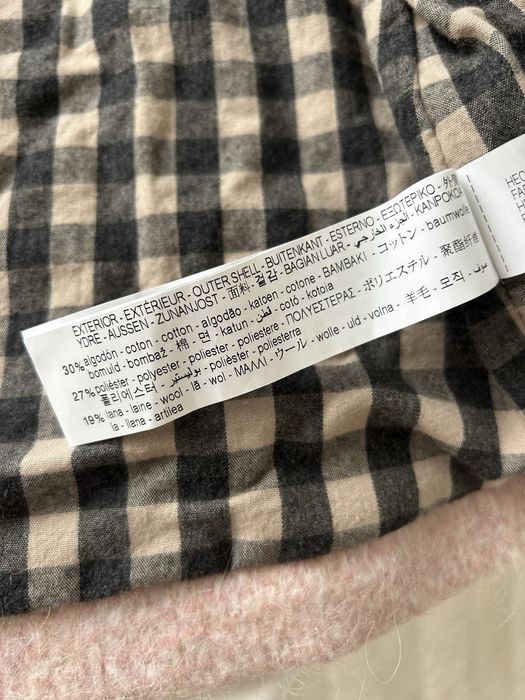 EXTERIOR - EXTÉRIEUR - OUTER SHELL - BUITENKANT - ESTERNO - ΕΞΩΤΕΡΙΚΟ - 外
YDRE - AUSSEN - ZUNANJOST - 面料 - 겉감 - BAGIAN LUAR - الجزء الخارجي - KANPOKOA
30% algodón - coton - cotton - algodão - katoen - cotone - ΒΑΜΒΑΚΙ - コットン - baumwolle
bomuld - bombaž - 棉 - 면 - katun - قطن - cotó - kotoia
27% poliéster - polyester - poliester - poliestere - ΠΟΛΥΕΣΤΕΡΑΣ - ポリエステル - 聚酯纤维
폴리에스터 - poliester - بوليستير - polièster - poliesterra
19% lana - laine - wool - lã - wol - ΜΑΛΛΙ - ウール - wolle - uld - volna - 羊毛 - 모직 - صوف
la - llana - artilea
HEC
FA
H